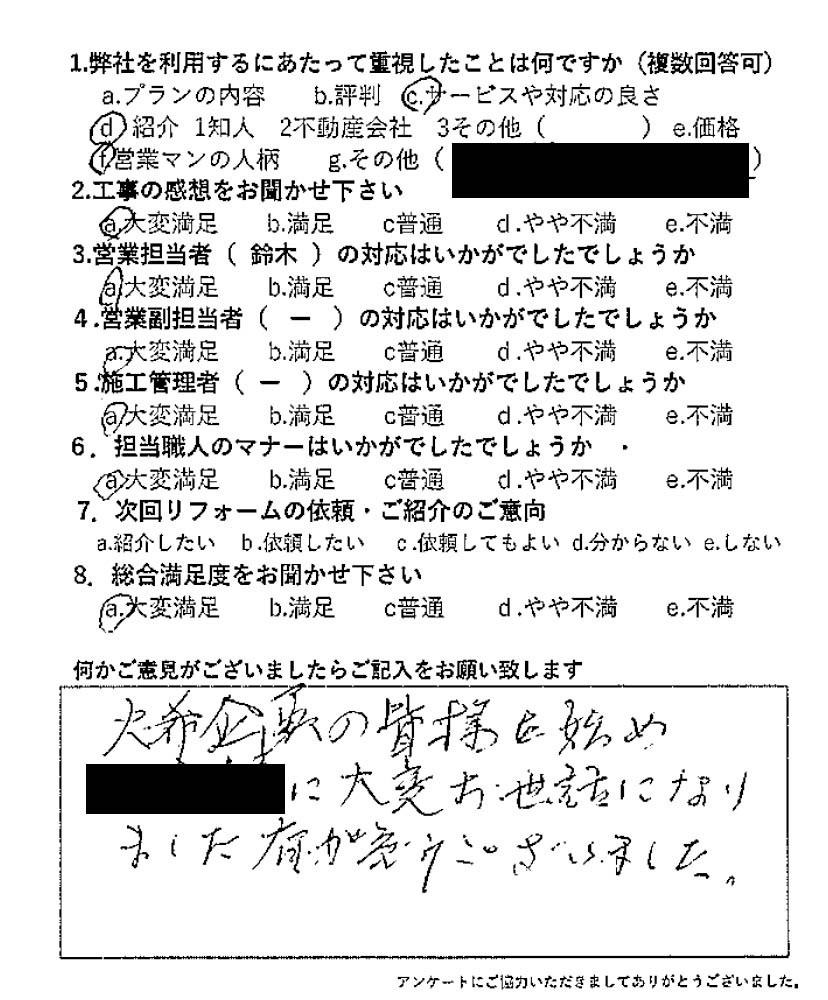 1.弊社を利用するにあたって重視したことは何ですか（複数回答可）
a.プランの内容 b.評判 c.サービスや対応の良さ
d 紹介 1知人 2不動産会社 3その他（ ） e.価格
f.営業マンの人柄 g.その他（ ）
2.工事の感想をお聞かせ下さい
a.大変満足 b.満足 c普通 d.やや不満 e.不満
3.営業担当者（ 鈴木 ）の対応はいかがでしたでしょうか
a.大変満足 b.満足 c普通 d.やや不満 e.不満
4.営業副担当者（ ー ）の対応はいかがでしたでしょうか
a.大変満足 b.満足 c普通 d.やや不満 e.不満
5.施工管理者（ ー ）の対応はいかがでしたでしょうか
a.大変満足 b.満足 c普通 d.やや不満 e.不満
6．担当職人のマナーはいかがでしたでしょうか
a.大変満足 b.満足 c普通 d.やや不満 e.不満
7．次回リフォームの依頼・ご紹介のご意向
a.紹介したい b.依頼したい c.依頼してもよい d.分からない e.しない
8．総合満足度をお聞かせ下さい
a.大変満足 b.満足 c普通 d.やや不満 e.不満
何かご意見がございましたらご記入をお願い致します
大希企画の皆様を始め
に大変お世話になり
ました 有が難うございました。
アンケートにご協力いただきましてありがとうございました。